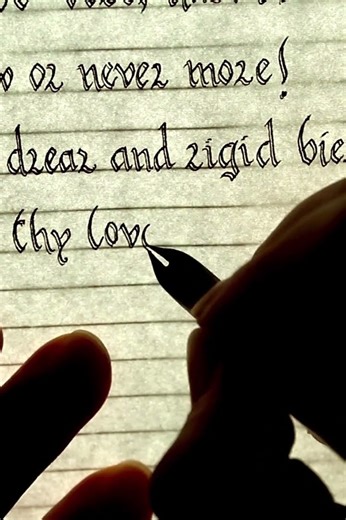 or never more!
drear and rigid bie
thy lov